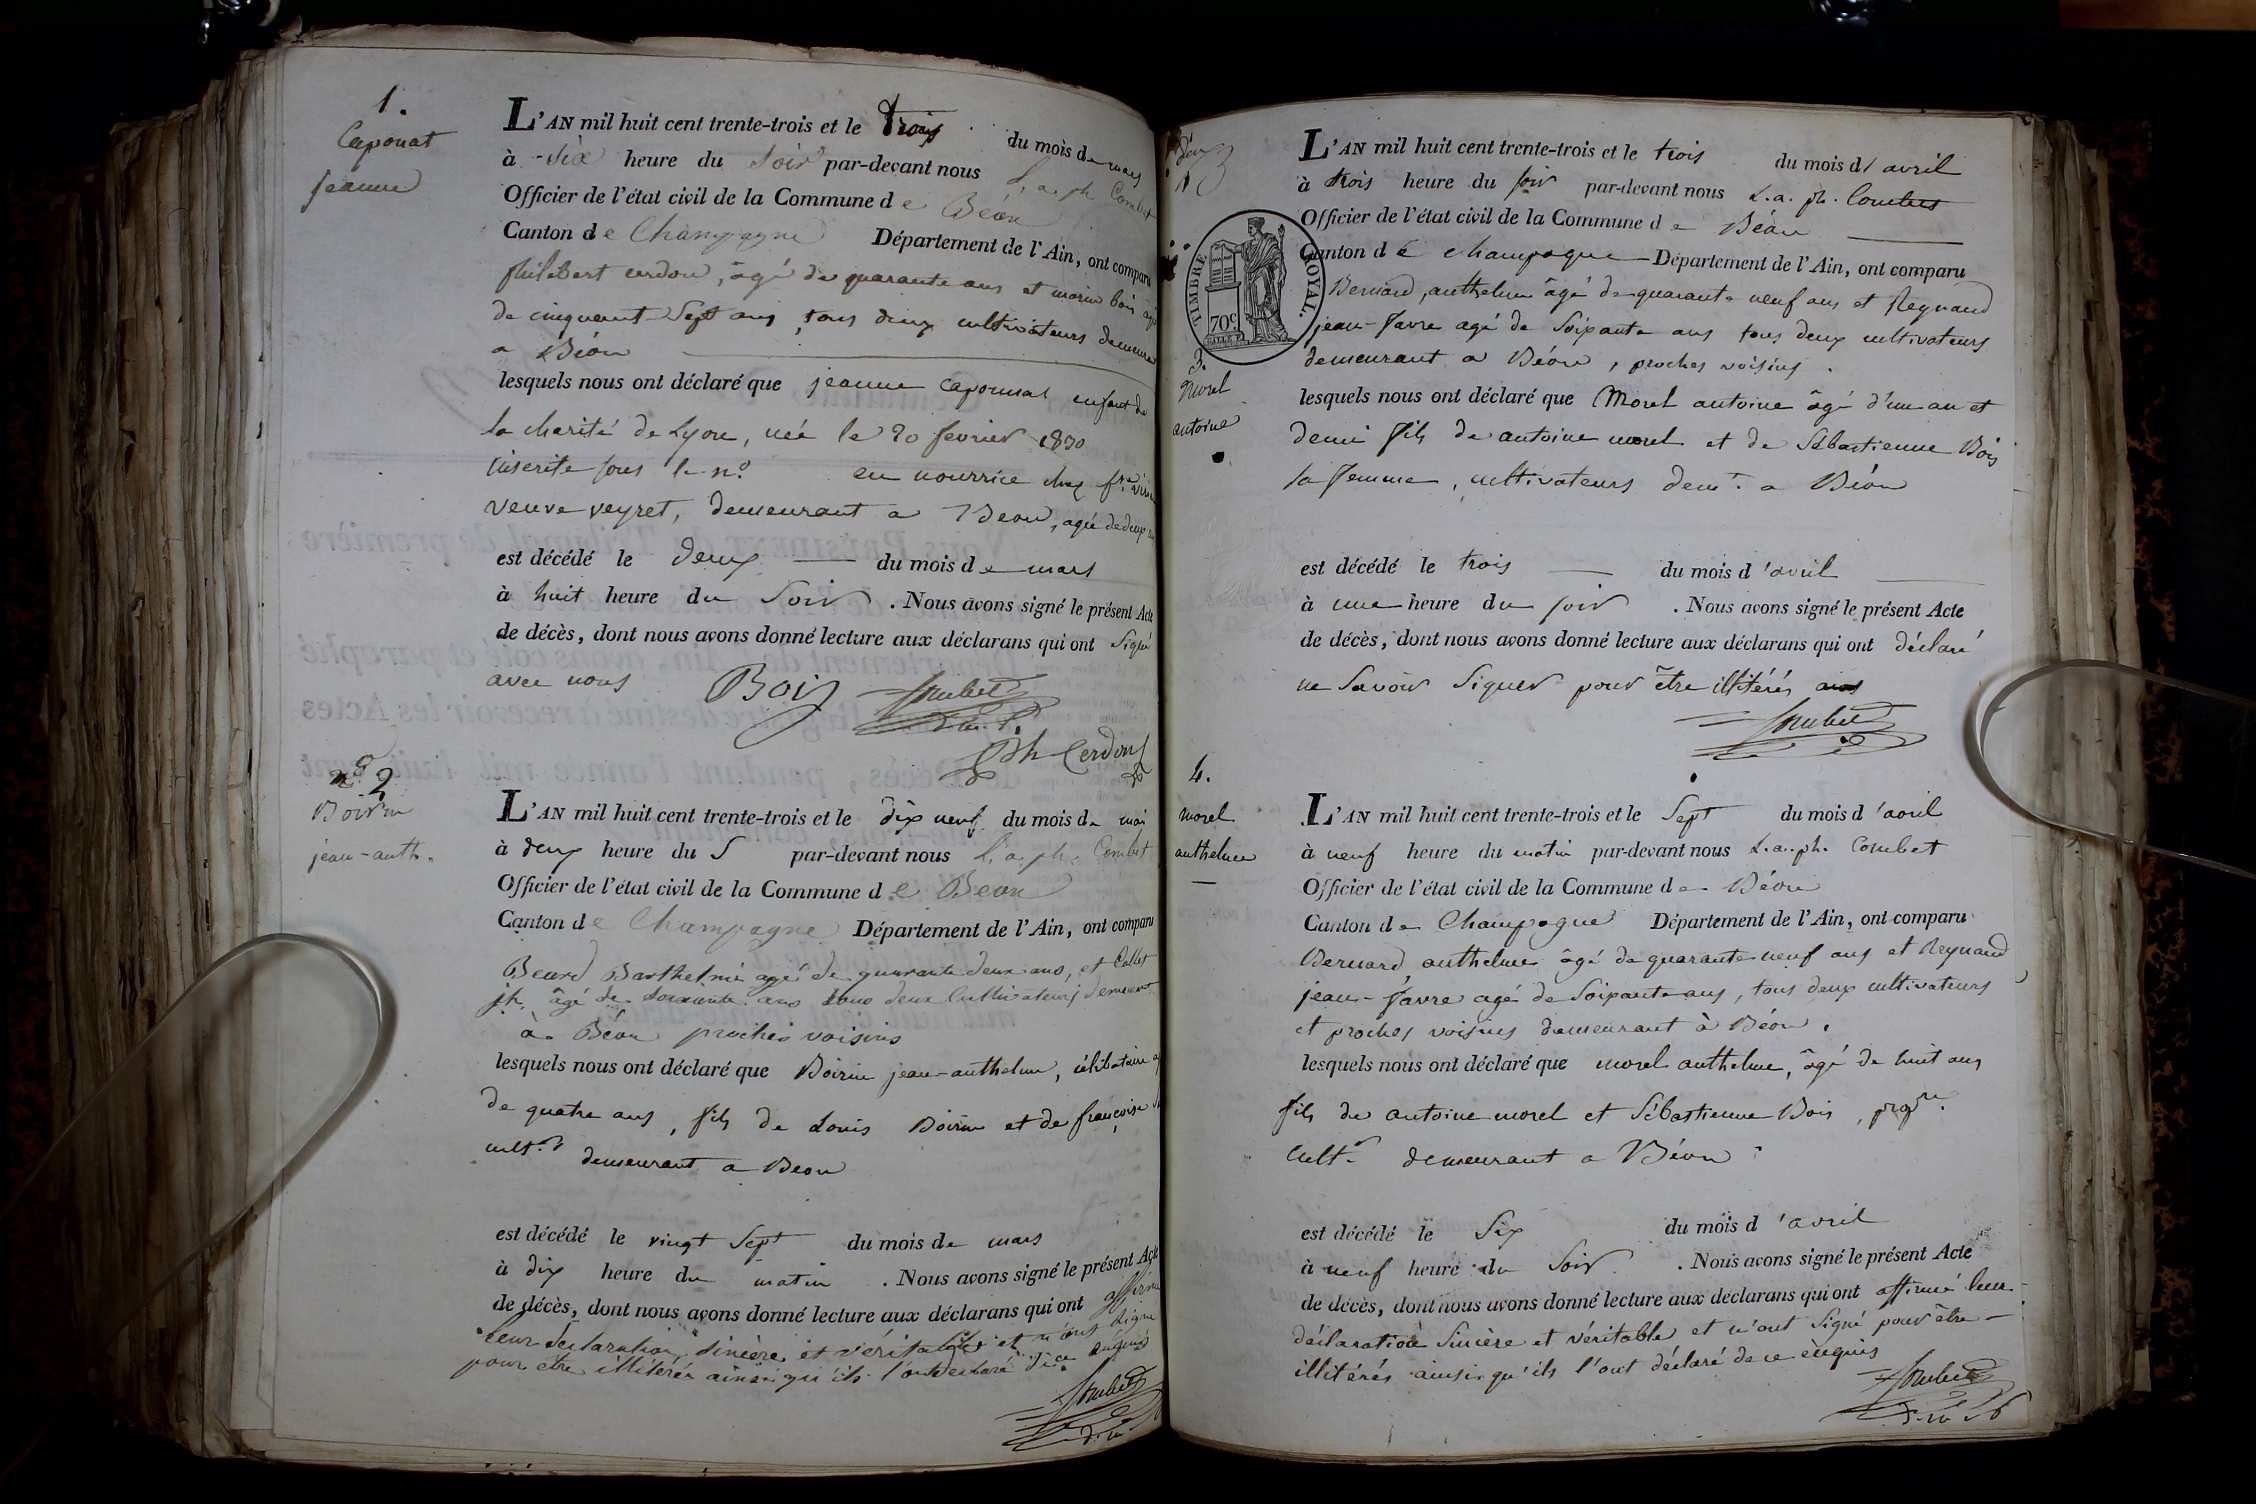 1.
Caponat
jeanne
L'AN mil huit cent trente-trois et le trois du mois de mars
à six heure du soir par-devant nous L. a. ph Combet
Officier de l'état civil de la Commune de Béon
Canton de Champagne Département de l'Ain, ont comparu
philibert cerdon, âgé de quarante ans et morin bois
de cinquant Sept ans, tous deux cultivateurs
a Béon
lesquels nous ont déclaré que jeanne caponnat enfant de
la charité de Lyon, née le 20 fevrier 1830
inscrite sous le n.º en nourrice chez
veuve veyret, demeurant a Beon, agée de deux
est décédé le deux du mois de mars
à huit heure du Soir. Nous avons signé le présent Acte
de décès, dont nous avons donné lecture aux déclarans qui ont signé
avec nous
Bois Combet
Ph Cerdon
nº 2
Boirin
jean-anth.
L'AN mil huit cent trente-trois et le dix neuf du mois de
à deux heure du S par-devant nous L. a. ph. Combet
Officier de l'état civil de la Commune de Beon
Canton de Champagne Département de l'Ain, ont comparu
Beard Barthelmi agé de quarante deux ans, et Collet
jh. âgé de soixante ans tous deux Cultivateurs demeurant
à Béon proches voisins
lesquels nous ont déclaré que Boirin jean-anthelme, célibataire
de quatre ans, fils de Louis Boirin et de françoise
cult.rs demeurant a Beon
est décédé le vingt Sept du mois de mars
à dix heure du matin. Nous avons signé le présent Acte
de décès, dont nous avons donné lecture aux déclarans qui ont affirmé
leur déclaration sincère et véritable et n'ont signé
pour être illitérés ainsi qu'ils l'ont déclaré de ce enquis
Combet
TIMBRE ROYAL.
70c
3.
Morel
antoine
L'AN mil huit cent trente-trois et le trois du mois d'avril
à trois heure du soir par-devant nous L. a. ph. Combet
Officier de l'état civil de la Commune de Béon
Canton de champagne Département de l'Ain, ont comparu
Bernard, anthelme âgé de quarante neuf ans et Reynaud
jean-favre agé de soixante ans tous deux cultivateurs
demeurant a Béon, proches voisins.
lesquels nous ont déclaré que Morel antoine âgé d'un an et
demi fils de antoine morel et de Sébastienne Bois
sa femme, cultivateurs dem.t a Béon
est décédé le trois du mois d'avril
à une heure du soir. Nous avons signé le présent Acte
de décès, dont nous avons donné lecture aux déclarans qui ont déclaré
ne savoir signer pour être illitérés
Combet
4.
morel
anthelme
L'AN mil huit cent trente-trois et le Sept du mois d'avril
à neuf heure du matin par-devant nous L. a. ph. Combet
Officier de l'état civil de la Commune de Béon
Canton de Champagne Département de l'Ain, ont comparu
Bernard anthelme âgé de quarante neuf ans et Reynaud
jean-favre agé de Soixante ans, tous deux cultivateurs
et proches voisins demeurant à Béon.
lesquels nous ont déclaré que morel anthelme, âgé de huit ans
fils de antoine morel et Sébastienne Bois, prop.re
Cult.r demeurant a Béon
est décédé le Six du mois d'avril
à neuf heure du Soir. Nous avons signé le présent Acte
de décès, dont nous avons donné lecture aux déclarans qui ont affirmé leur
déclaration sincère et véritable et n'ont signé pour être
illitérés ainsi qu'ils l'ont déclaré de ce enquis
Combet